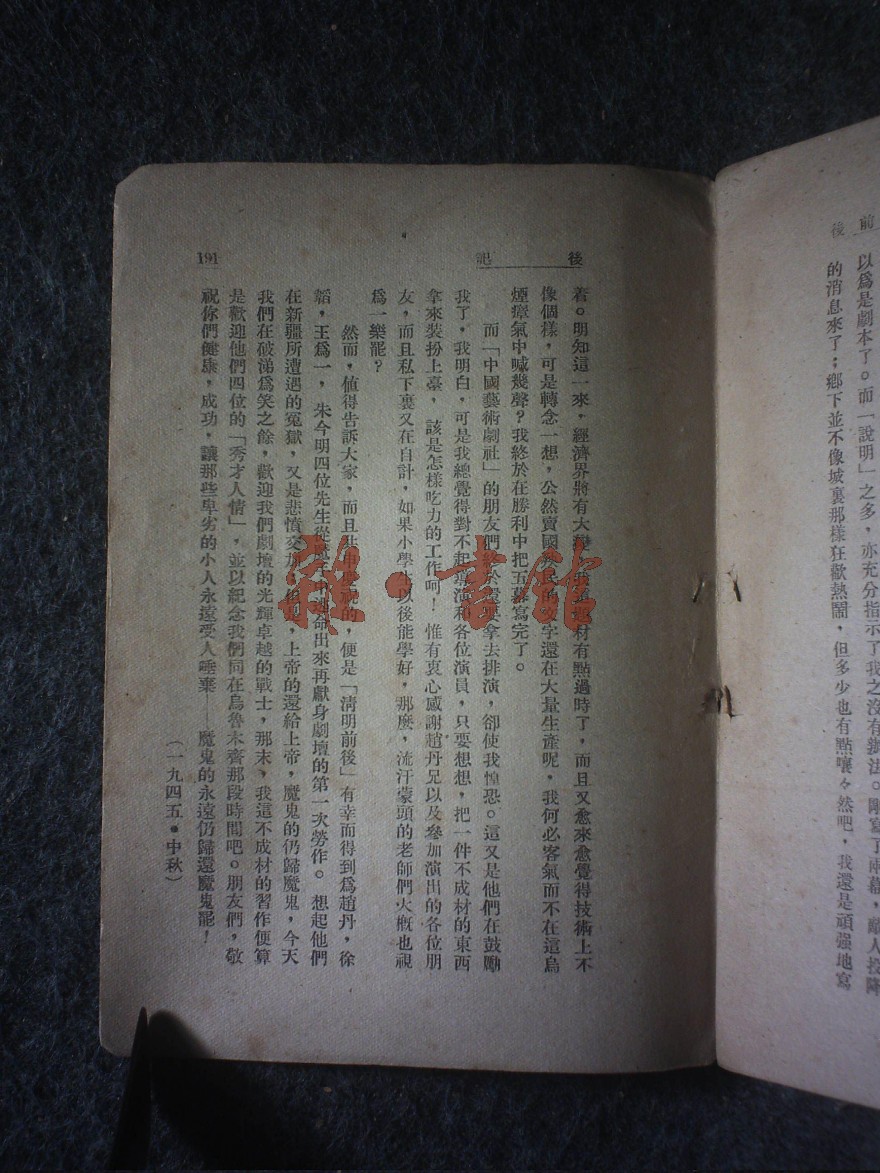 前
後
以爲是劇本了。而「說明」之多，亦充分指示了我之沒有辦法。剛寫了兩幕，敵人投降
的消息來了；鄉下並不像城裏那樣狂歡熱鬧，但多少也有點嚷々然吧，我還是頑强地寫
後 記
着。明知這一來，經濟界將有大變，我這題材有點過時了，而且又愈來愈覺得技術上不
像個樣，可是轉念一想，公然賣國殃民的文字還在大量生產呢，我何必客氣而不在這烏
煙瘴氣中喊幾聲？我終於在勝利中把五幕寫完了。
而「中國藝術劇社」的朋友們終於還要拿去排演，卻使我惶恐。這又是他們在鼓勵
我了，我明白，可是我總覺得對不起導演和各位演員，只要想想，把一件不成材的東西
拿來裝扮上臺，該是怎樣吃力的工作呵！惟有衷心感謝趙丹兄以及參加演出的各位朋
友，而且私下裏又在自計，如果小學生以後能學好，那麽，流汗蒙頭的老師們大概也視
爲一樂罷？
然而，値得告訴大家，而且 的，便是「清明前後」有幸而得到爲趙丹，徐
韜，王爲一，朱今明四位先生從 逃命出來再獻身劇壇的第一次勞作。想起他們
在新疆所遭遇的冤獄，又是悲憤交加， ，上帝的還給上帝，魔鬼的仍歸魔鬼，今天
我們在破涕爲笑之餘，歡迎我們劇壇的光輝卓越的戰士，那末，我這不成材的習作便算
是歡迎他們四位的「秀才人情」，並以紀念我們同在烏魯木齊那段時間吧。朋友們，敬
祝你們健康，成功，讓那些卑劣的小人永遠受人唾棄——魔鬼的永遠仍歸還魔鬼罷！
（一九四五・中秋）
191
雜・書館